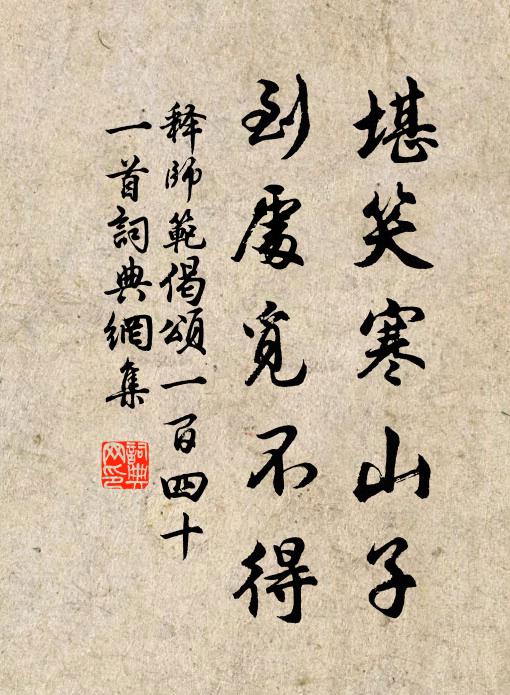 堪笑寒山子
到處覓不得
释師範偈頌一百四十
一首詞典網集
詞典网印